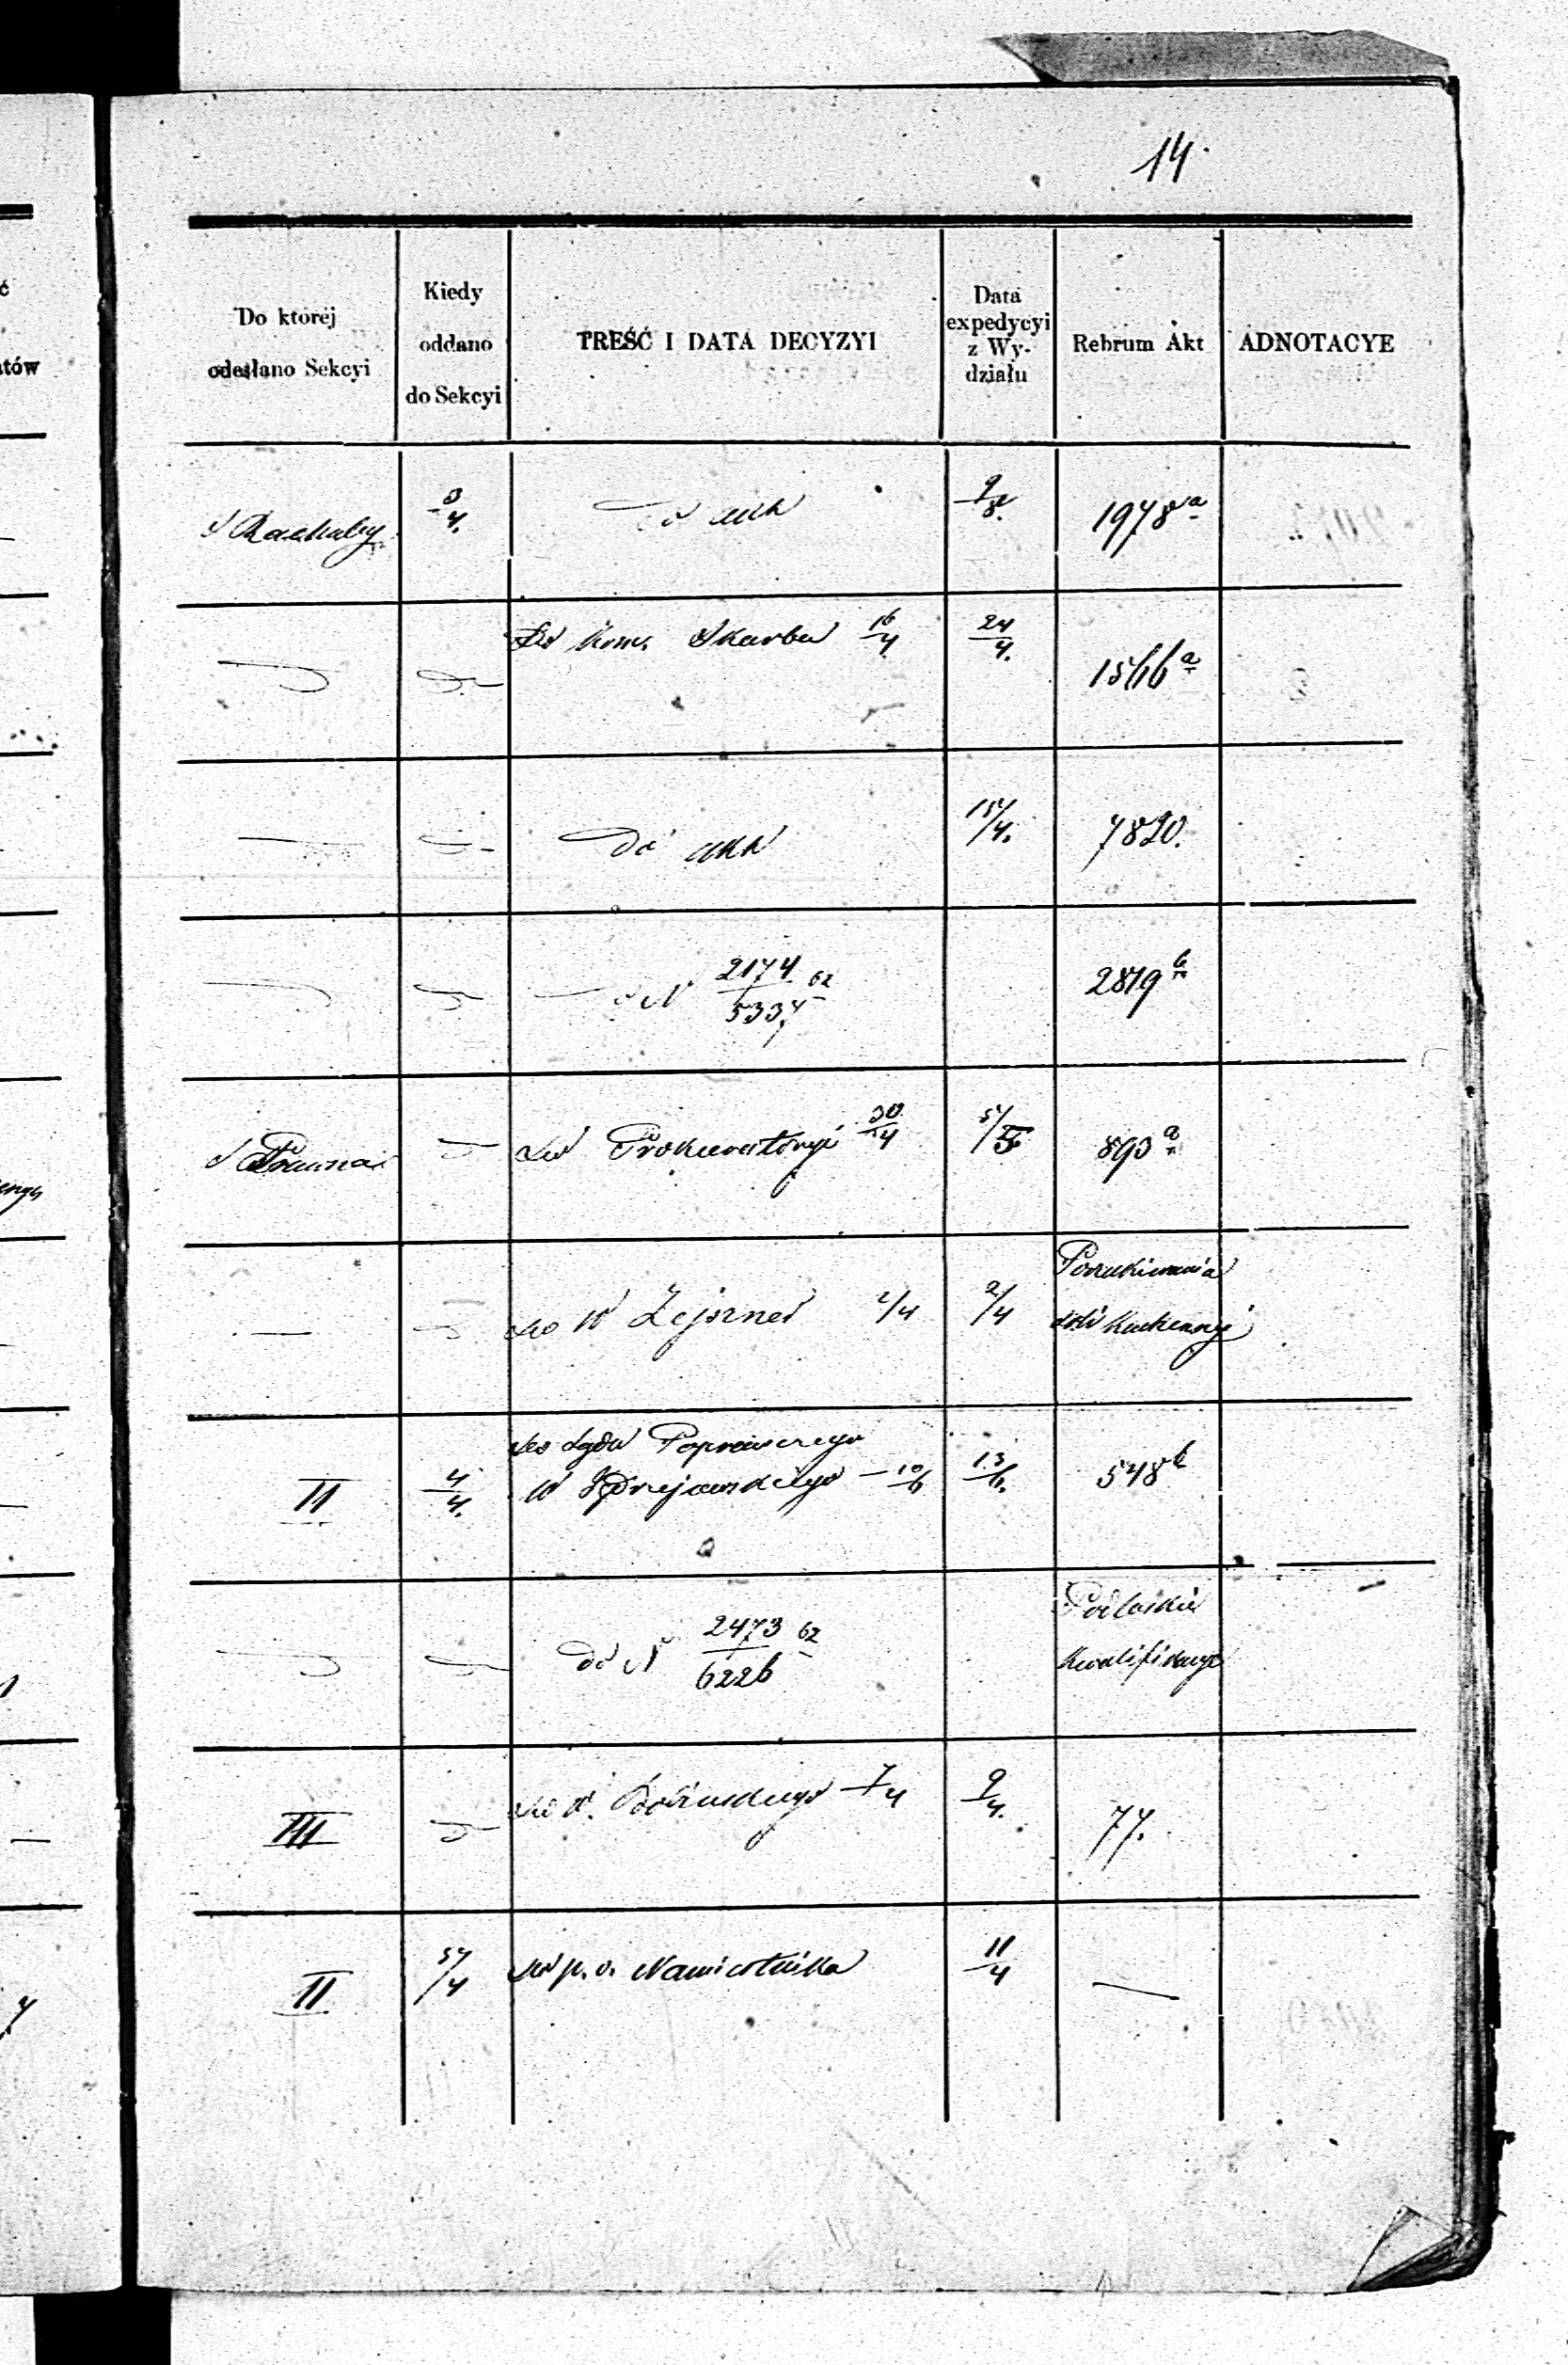 14.
Do której
odesłano Sekcyi
Kiedy
oddano
do Sekcyi
TREŚĆ I DATA DECYZYI
Data
expedycyi
z Wy-
działu
Rebrum Akt
ADNOTACYE
S
3/4.
Do akt
1978a
Do Kom. Skarbu 16/4
24/4.
1566a
Do akt
15/4.
7820.
do N 2174/5334 62
2819b
S Prawna
Do Prokuratoryi 30/4
5/5
893a
Do W Zejsznera 2/4
2/4
Poszukiwania
soli kuchennej
II
4/4.
Do Sądu Poprawczego
W Jędrzejowskiego — 10/6
13/6.
548b
do N 2473/6226 62
Podlaskie
kwalifikacye
III
Do W. 7/4
9/4.
77.
II
5/4
Do p. o. Namiestnika
11/4
—
ć
tów